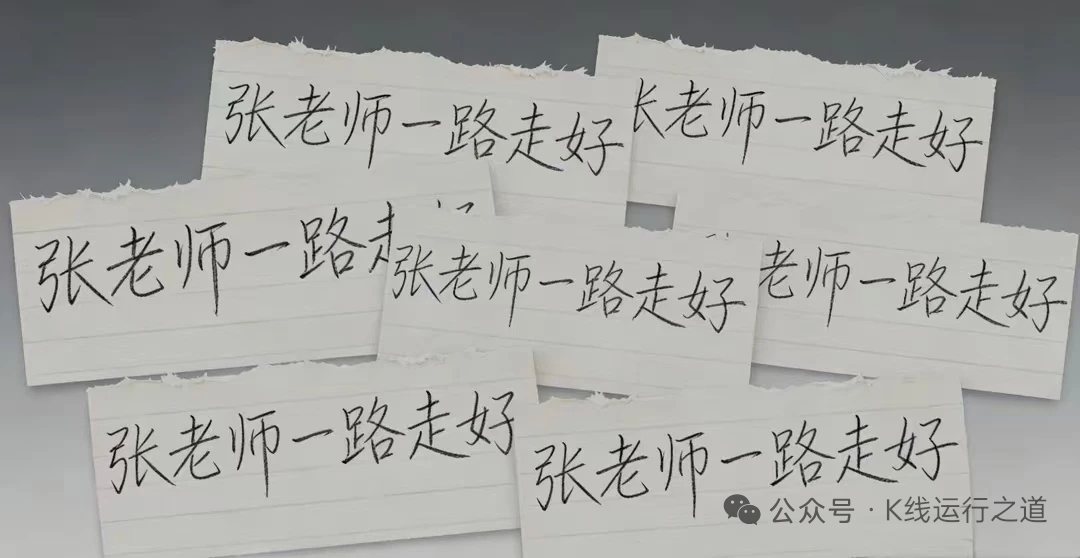 张老师一路走好
张老师一路走好
张老师一路走
张老师一路走好
老师一路走好
张老师一路走好
张老师一路走好
公众号 · K线运行之道